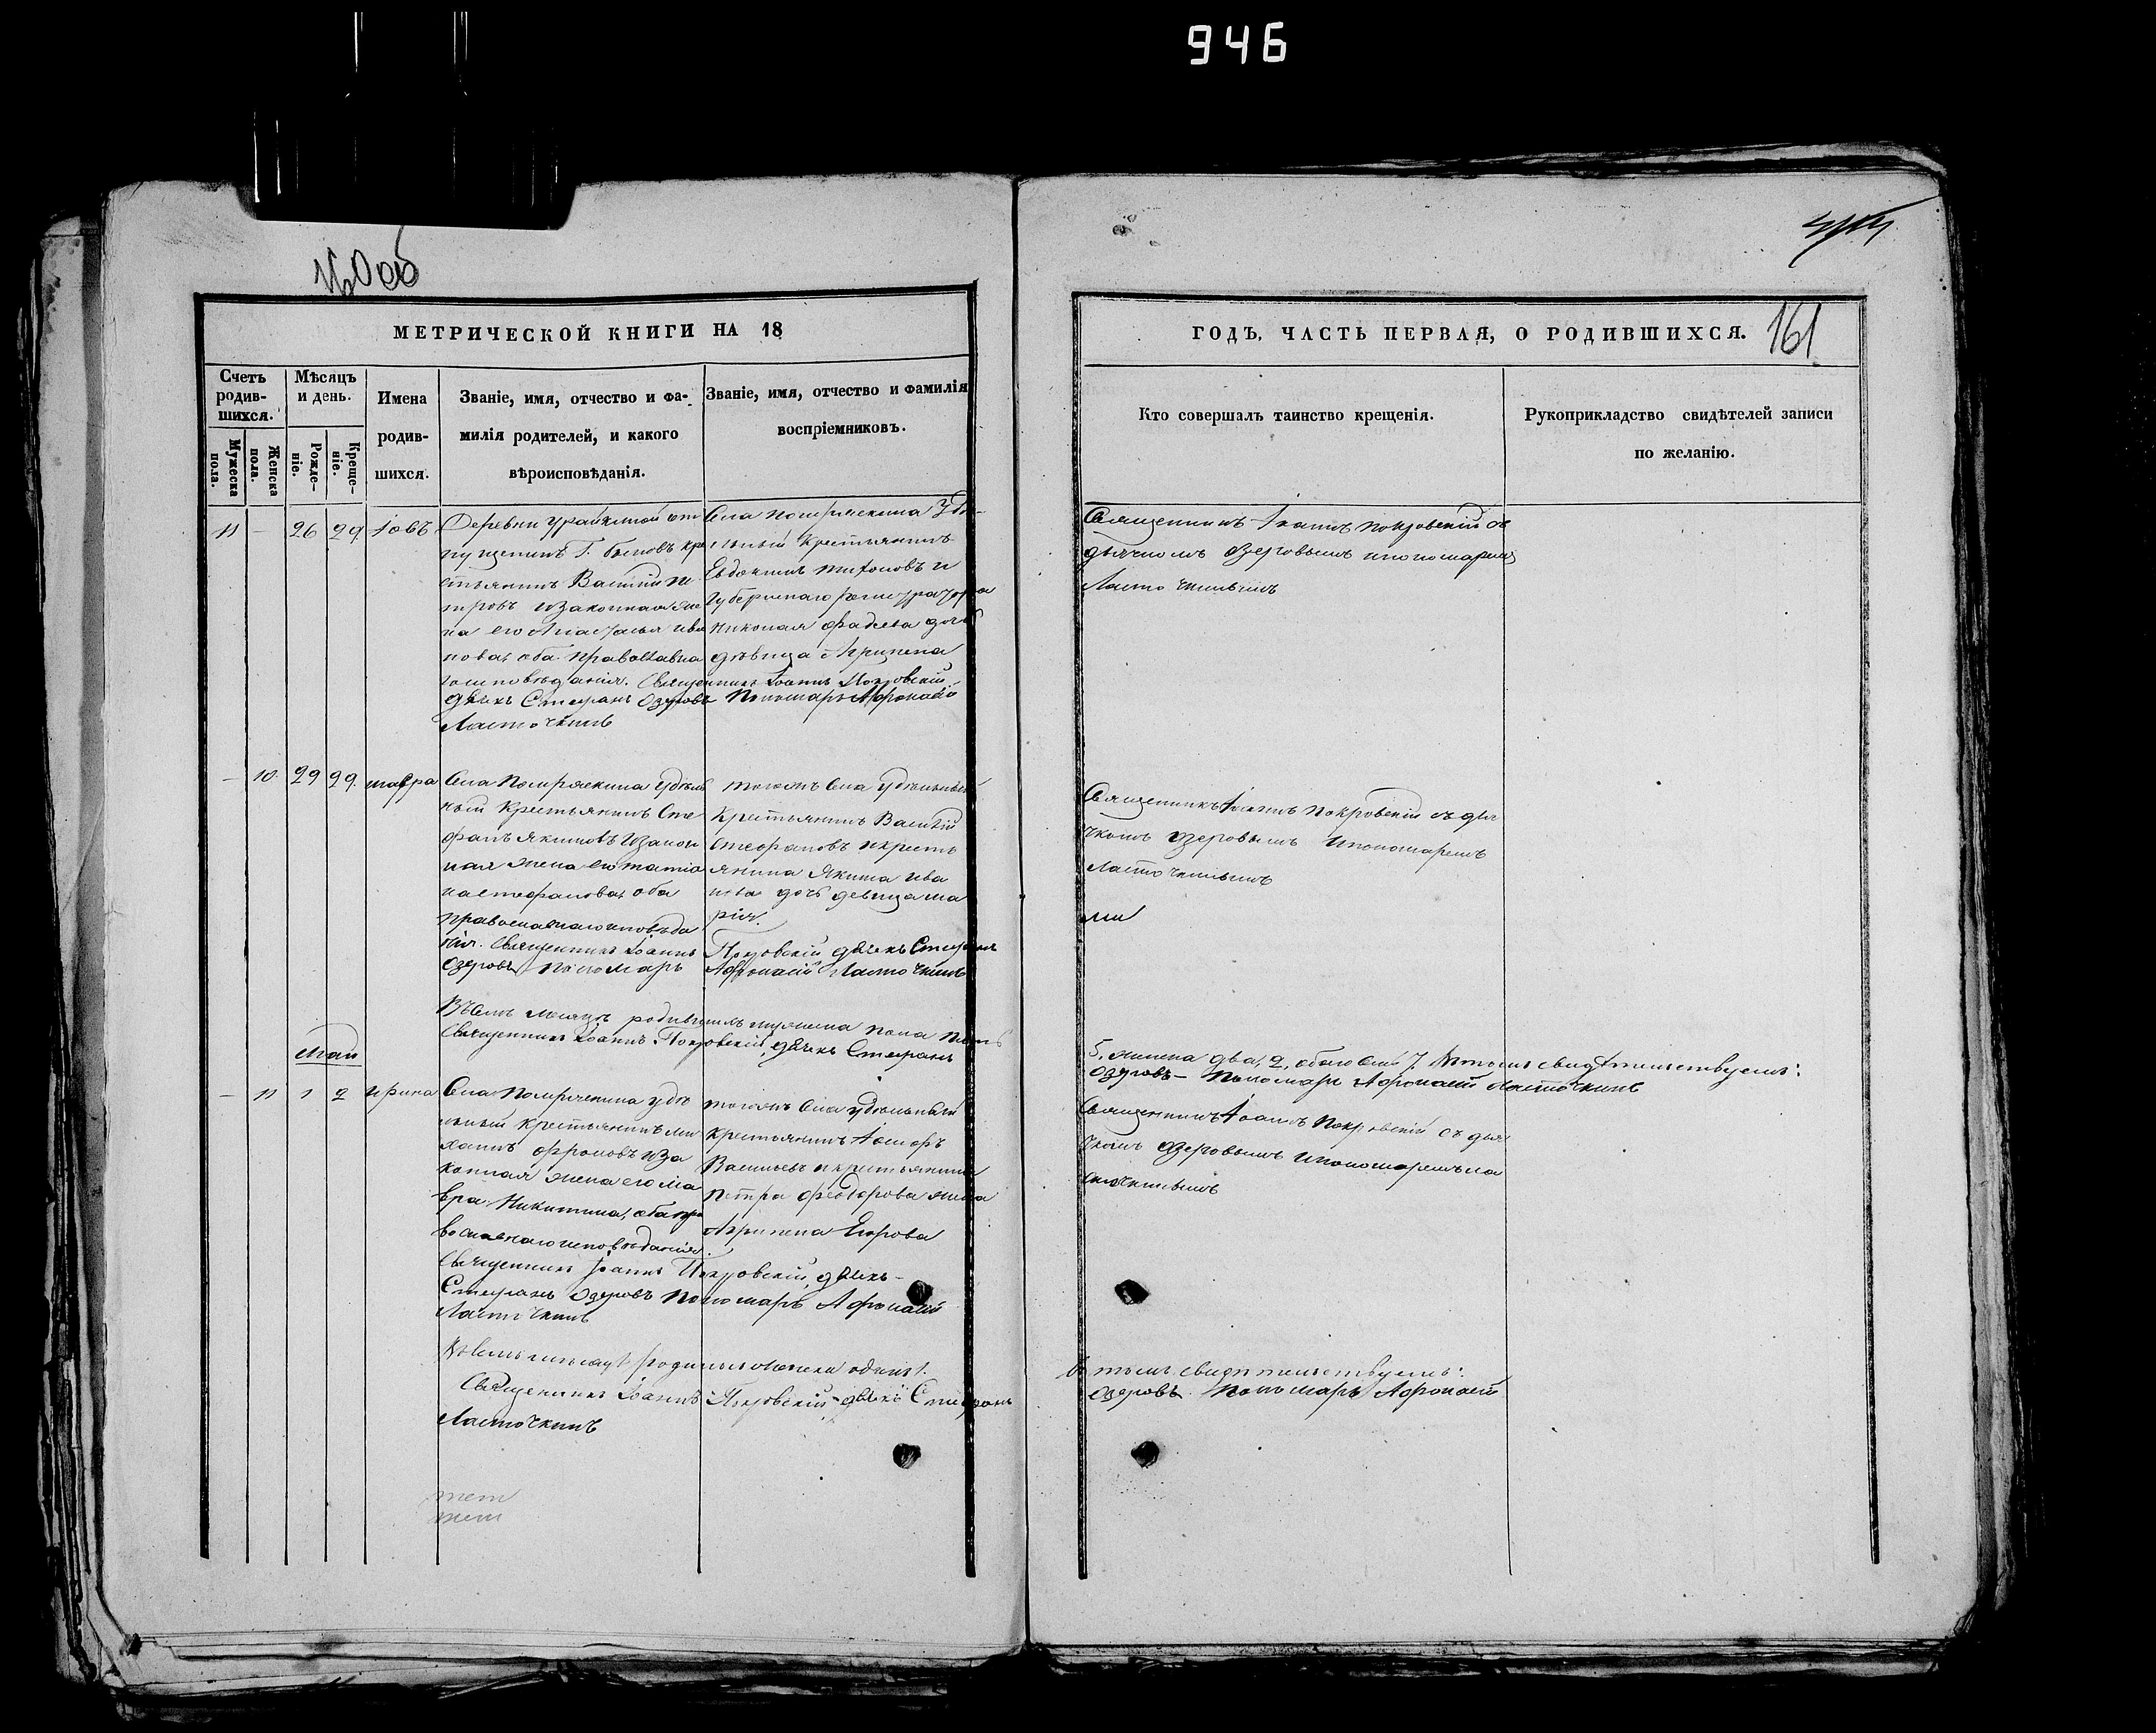 946
160 об
МЕТРИЧЕСКОЙ КНИГИ НА 18
Счетъ родив-шихся.
Мѣсяцъ и день.
Имена родив-шихся.
Званіе, имя, отчество и фа-
милія родителей, и какого
вѣроисповѣданія.
Званіе, имя, отчество и фамилія
воспріемниковъ.
Мужеска пола.
Женска пола.
Рожде-ніе.
Креще-ніе.
11 — 26 29 Іовъ
Деревни от
пущенникъ Г. кре
стьянинъ Василій Пе
тровъ изаконная же
на его Анастасья Ива
нова, оба православна
го исповѣданія. Священникъ Іоаннъ Покровскій
дьячекъ Стефанъ Озеровъ Пономарь Афонасій
Ласточкинъ
Села Помряскина Удѣ
льный крестьянинъ
Евдокимъ и
Губернскаго регистратора
Николая Фадеева дочь
дѣвица Агрипена
— 10. 29 29. мавра
Села Помряскина удѣль
ный крестьянинъ Сте
фанъ Якимовъ изакон
ная жена его татіа
на стефанова, оба
православнаго исповѣда
нія. Священникъ Іоаннъ Покровскій дьячекъ Стефанъ
Озеровъ Пономарь Афонасій Ласточкинъ
тогожъ Села удѣльный
крестьянинъ Василій
Стефановъ и кресть
янина Якима Ива
нова дочь девица Ма
рія.
Въ семъ месяцѣ родившихъ мужеска пола пять
Священникъ Іоаннъ Покровскій, дьячекъ Стефанъ
Май
— 11 1 2 Ирина
Села Помряскина удѣ
льный крестьянинъ ми
хаилъ фроловъ иза
конная жена его ма
вра Никитина, оба пра
вославнаго исповѣданія.
Священникъ Іоаннъ Покровскій, дьячекъ
Стефанъ Озеровъ Пономарь Афонасій
Ласточкинъ
тогожъ Села удѣльный
крестьянинъ
Васильевъ и крестьянина
Петра Феодорова жена
Агрипена Егорова
Священникъ Іоаннъ Покровскій дьячекъ Стефанъ
Ласточкинъ
161
ГОДЪ. ЧАСТЬ ПЕРВАЯ, О РОДИВШИХСЯ.
Кто совершалъ таинство крещенія.
Рукоприкладство свидѣтелей записи
по желанію.
Священникъ Іоаннъ Покровскій съ
дьячкомъ Озеровымъ и пономаремъ
Ласточкинымъ
Священникъ Іоаннъ Покровскій съ дья
чкомъ Озеровымъ и пономаремъ
Ласточкинымъ
5, женска два, 2, обоего 7. Въ томъ свидѣтельствуемъ:
Озеровъ — Пономарь Афонасій Ласточкинъ
Священникъ Іоаннъ Покровскій съ дья
чкомъ Озеровымъ и пономаремъ ла
сточкинымъ
въ томъ свидѣтельствуемъ:
Озеровъ. Пономарь Афонасій